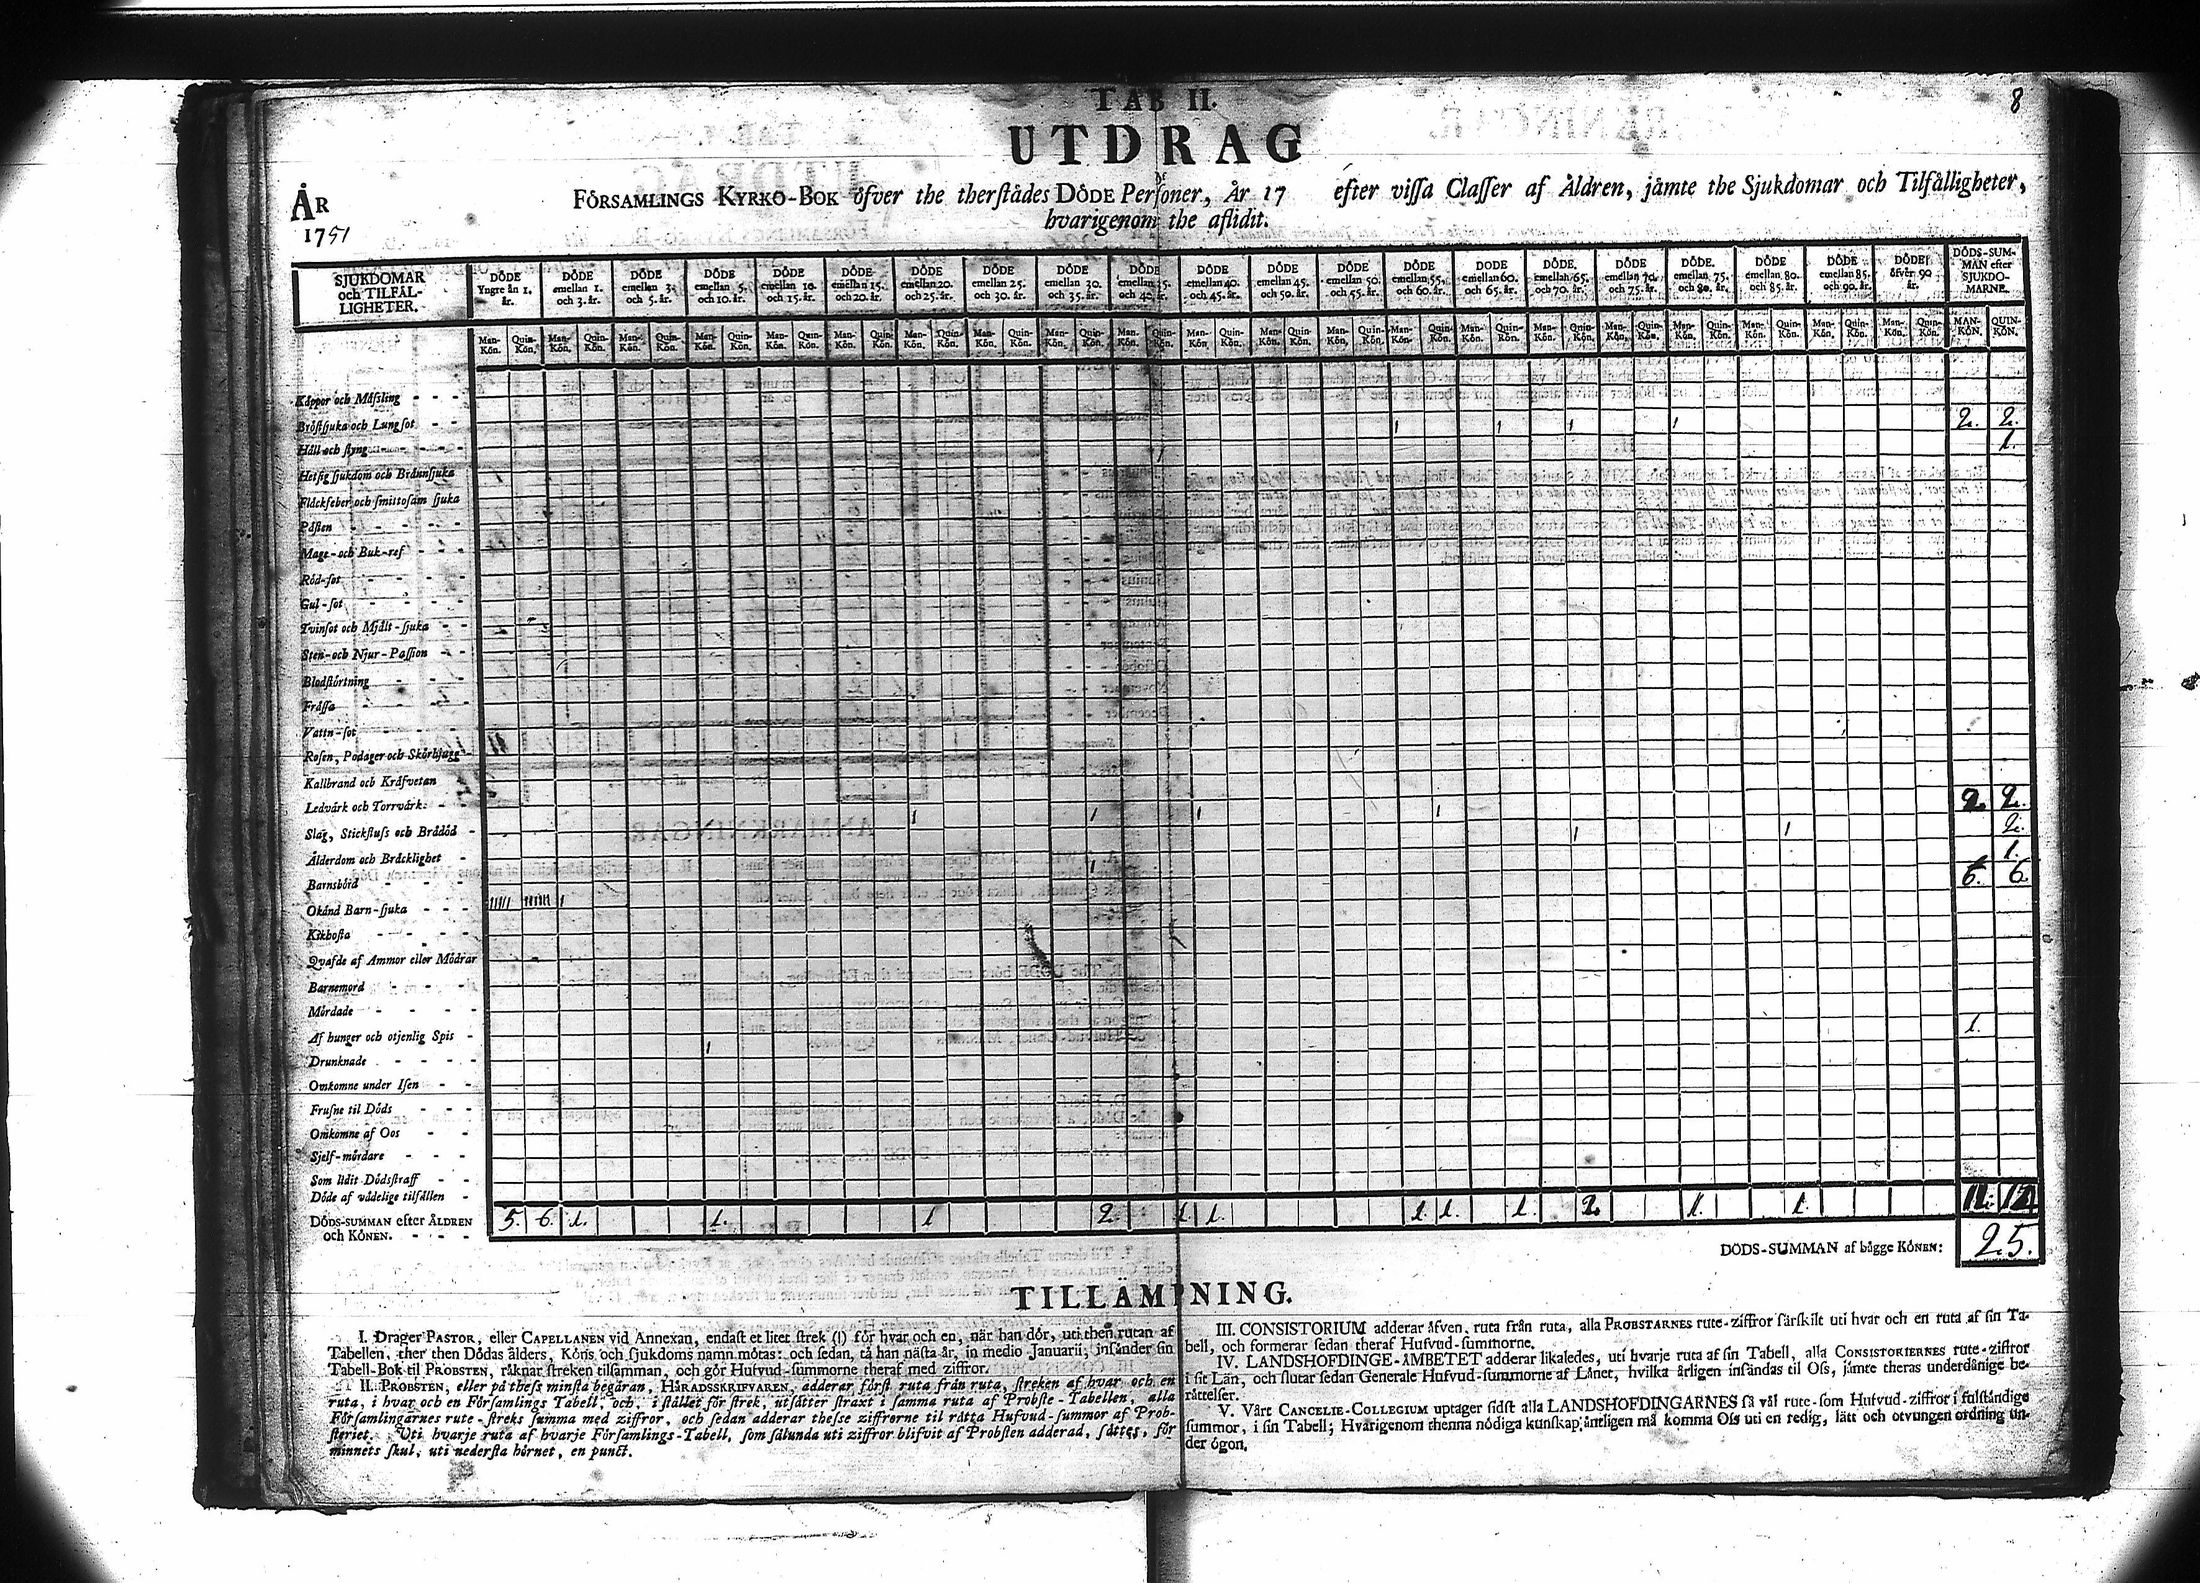 8
TAB II.
UTDRAG
ÅR
1751
FÖRSAMLINGS KYRKO-BOK öfver the therstädes DÖDE Personer, År 17 efter vissa Classer af Åldren, jämte the Sjukdomar och Tilfälligheter,
hvarigenom the aflidit.
SJUKDOMAR och TILFÄL-LIGHETER.
DÖDE Yngre än 1. år.
DÖDE emellan 1. och 3. år.
DÖDE emellan 3. och 5. år.
DÖDE emellan 5. och 10. år.
DÖDE emellan 10. och 15. år.
DÖDE emellan 15. och 20. år.
DÖDE emellan 20. och 25. år.
DÖDE emellan 25. och 30. år.
DÖDE emellan 30. och 35. år.
DÖDE emellan 35. och 40. år.
DÖDE emellan 40. och 45. år.
DÖDE emellan 45. och 50. år.
DÖDE emellan 50. och 55. år.
DÖDE emellan 55. och 60. år.
DÖDE emellan 60. och 65. år.
DÖDE emellan 65. och 70. år.
DÖDE emellan 70. och 75. år.
DÖDE emellan 75. och 80. år.
DÖDE emellan 80. och 85. år.
DÖDE emellan 85. och 90. år.
DÖDE öfver 90 år.
DÖDS-SUM-MAN efter SJUKDO-MARNE.
Man-Kön. Quin-Kön. Man-Kön. Quin-Kön. Man-Kön. Quin-Kön. Man-Kön. Quin-Kön. Man-Kön. Quin-Kön. Man-Kön. Quin-Kön. Man-Kön. Quin-Kön. Man-Kön. Quin-Kön. Man-Kön. Quin-Kön. Man-Kön. Quin-Kön. Man-Kön. Quin-Kön. Man-Kön. Quin-Kön. Man-Kön. Quin-Kön. Man-Kön. Quin-Kön. Man-Kön. Quin-Kön. Man-Kön. Quin-Kön. Man-Kön. Quin-Kön. Man-Kön. Quin-Kön. Man-Kön. Quin-Kön. Man-Kön. Quin-Kön. Man-Kön. Quin-Kön. MAN-KÖN. QUIN-KÖN.
Koppor och Mäsling
Bröstsjuka och Lungsot 1 1 1 1 2. 2.
Håll och styng 1 1.
Hetsig sjukdom och Brännsjuka
Fläckfeber och smittosam sjuka
Pästen
Mage- och Buk-ref
Röd-sot
Gul-sot
Tvinsot och Mjält-sjuka
Sten- och Njur-Passion
Blodstörtning
Frässa
Vattn-sot
Rosen, Podager och Skörbjugg
Kallbrand och Kräfvetan
Ledvärk och Torrvärk 1 1 1 1 2. 2.
Slag, Stickfluss och Brådöd 1 1 2.
Ålderdom och Bräcklighet 1 1.
Barnsbörd 6. 6.
Okänd Barn-sjuka 11111 111111 1
Kikhosta
Qvafde af Ammor eller Mödrar
Barnemord
Mördade
Af hunger och otjenlig Spis 1.
Drunknade 1
Omkomne under Isen
Frusne til Döds
Omkomne af Oos
Sjelf-mördare
Som lidit Dödsstraff
Döde af vådelige tilfällen
DÖDS-SUMMAN efter ÅLDREN 5. 6. 1. 1. 1 2. 1 1. 1 1. 1. 2 1. 1.
och KÖNEN.
DÖDS-SUMMAN af bägge KÖNEN: 25.
TILLÄMPNING.
I. Drager PASTOR, eller CAPELLANEN vid Annexan, endast et litet strek (|) för hvar och en, när han dör, uti then rutan af
Tabellen, ther then Dödas ålders, Köns och sjukdoms namn mötas: och sedan, tå han nästa år, in medio Januarii, insänder sin
Tabell-Bok til PROBSTEN, räknar streken tilsamman, och gör Hufvud-summorne theraf med ziffror.
II. PROBSTEN, eller på thess minsta begäran, HÄRADSSKRIFVAREN, adderar först ruta från ruta, streken af hvar och en
ruta, i hvar och en Församlings Tabell, och, i stället för strek, utsätter straxt i samma ruta af Probste-Tabellen, alla
Församlingarnes rute-streks summa med ziffror, och sedan adderar thesse ziffrorne til rätta Hufvud-summor af Prob-
steriet. Uti hvarje ruta af hvarje Församlings-Tabell, som sålunda uti ziffror blifvit af Probsten adderad, sättes, för
minnets skul, uti nedersta hörnet, en punct.
III. CONSISTORIUM adderar äfven, ruta från ruta, alla PROBSTARNES rute-ziffror särskilt uti hvar och en ruta af sin Ta-
bell, och formerar sedan theraf Hufvud-summorne.
IV. LANDSHÖFDINGE-ÄMBETET adderar likaledes, uti hvarje ruta af sin Tabell, alla CONSISTORIERNES rute-ziffror
i sit Län, och slutar sedan Generale Hufvud-summorne af Länet, hvilka årligen insändas til Oss, jämte theras underdånige be-
rättelser.
V. Vårt CANCELIE-COLLEGIUM uptager sidst alla LANDSHÖFDINGARNES så väl rute-som Hufvud-ziffror i fulständige
summor, i sin Tabell; Hvarigenom thenna nödiga kunskap änteligen må komma Oss uti en redig, lätt och otvungen ordning un-
der ögon.